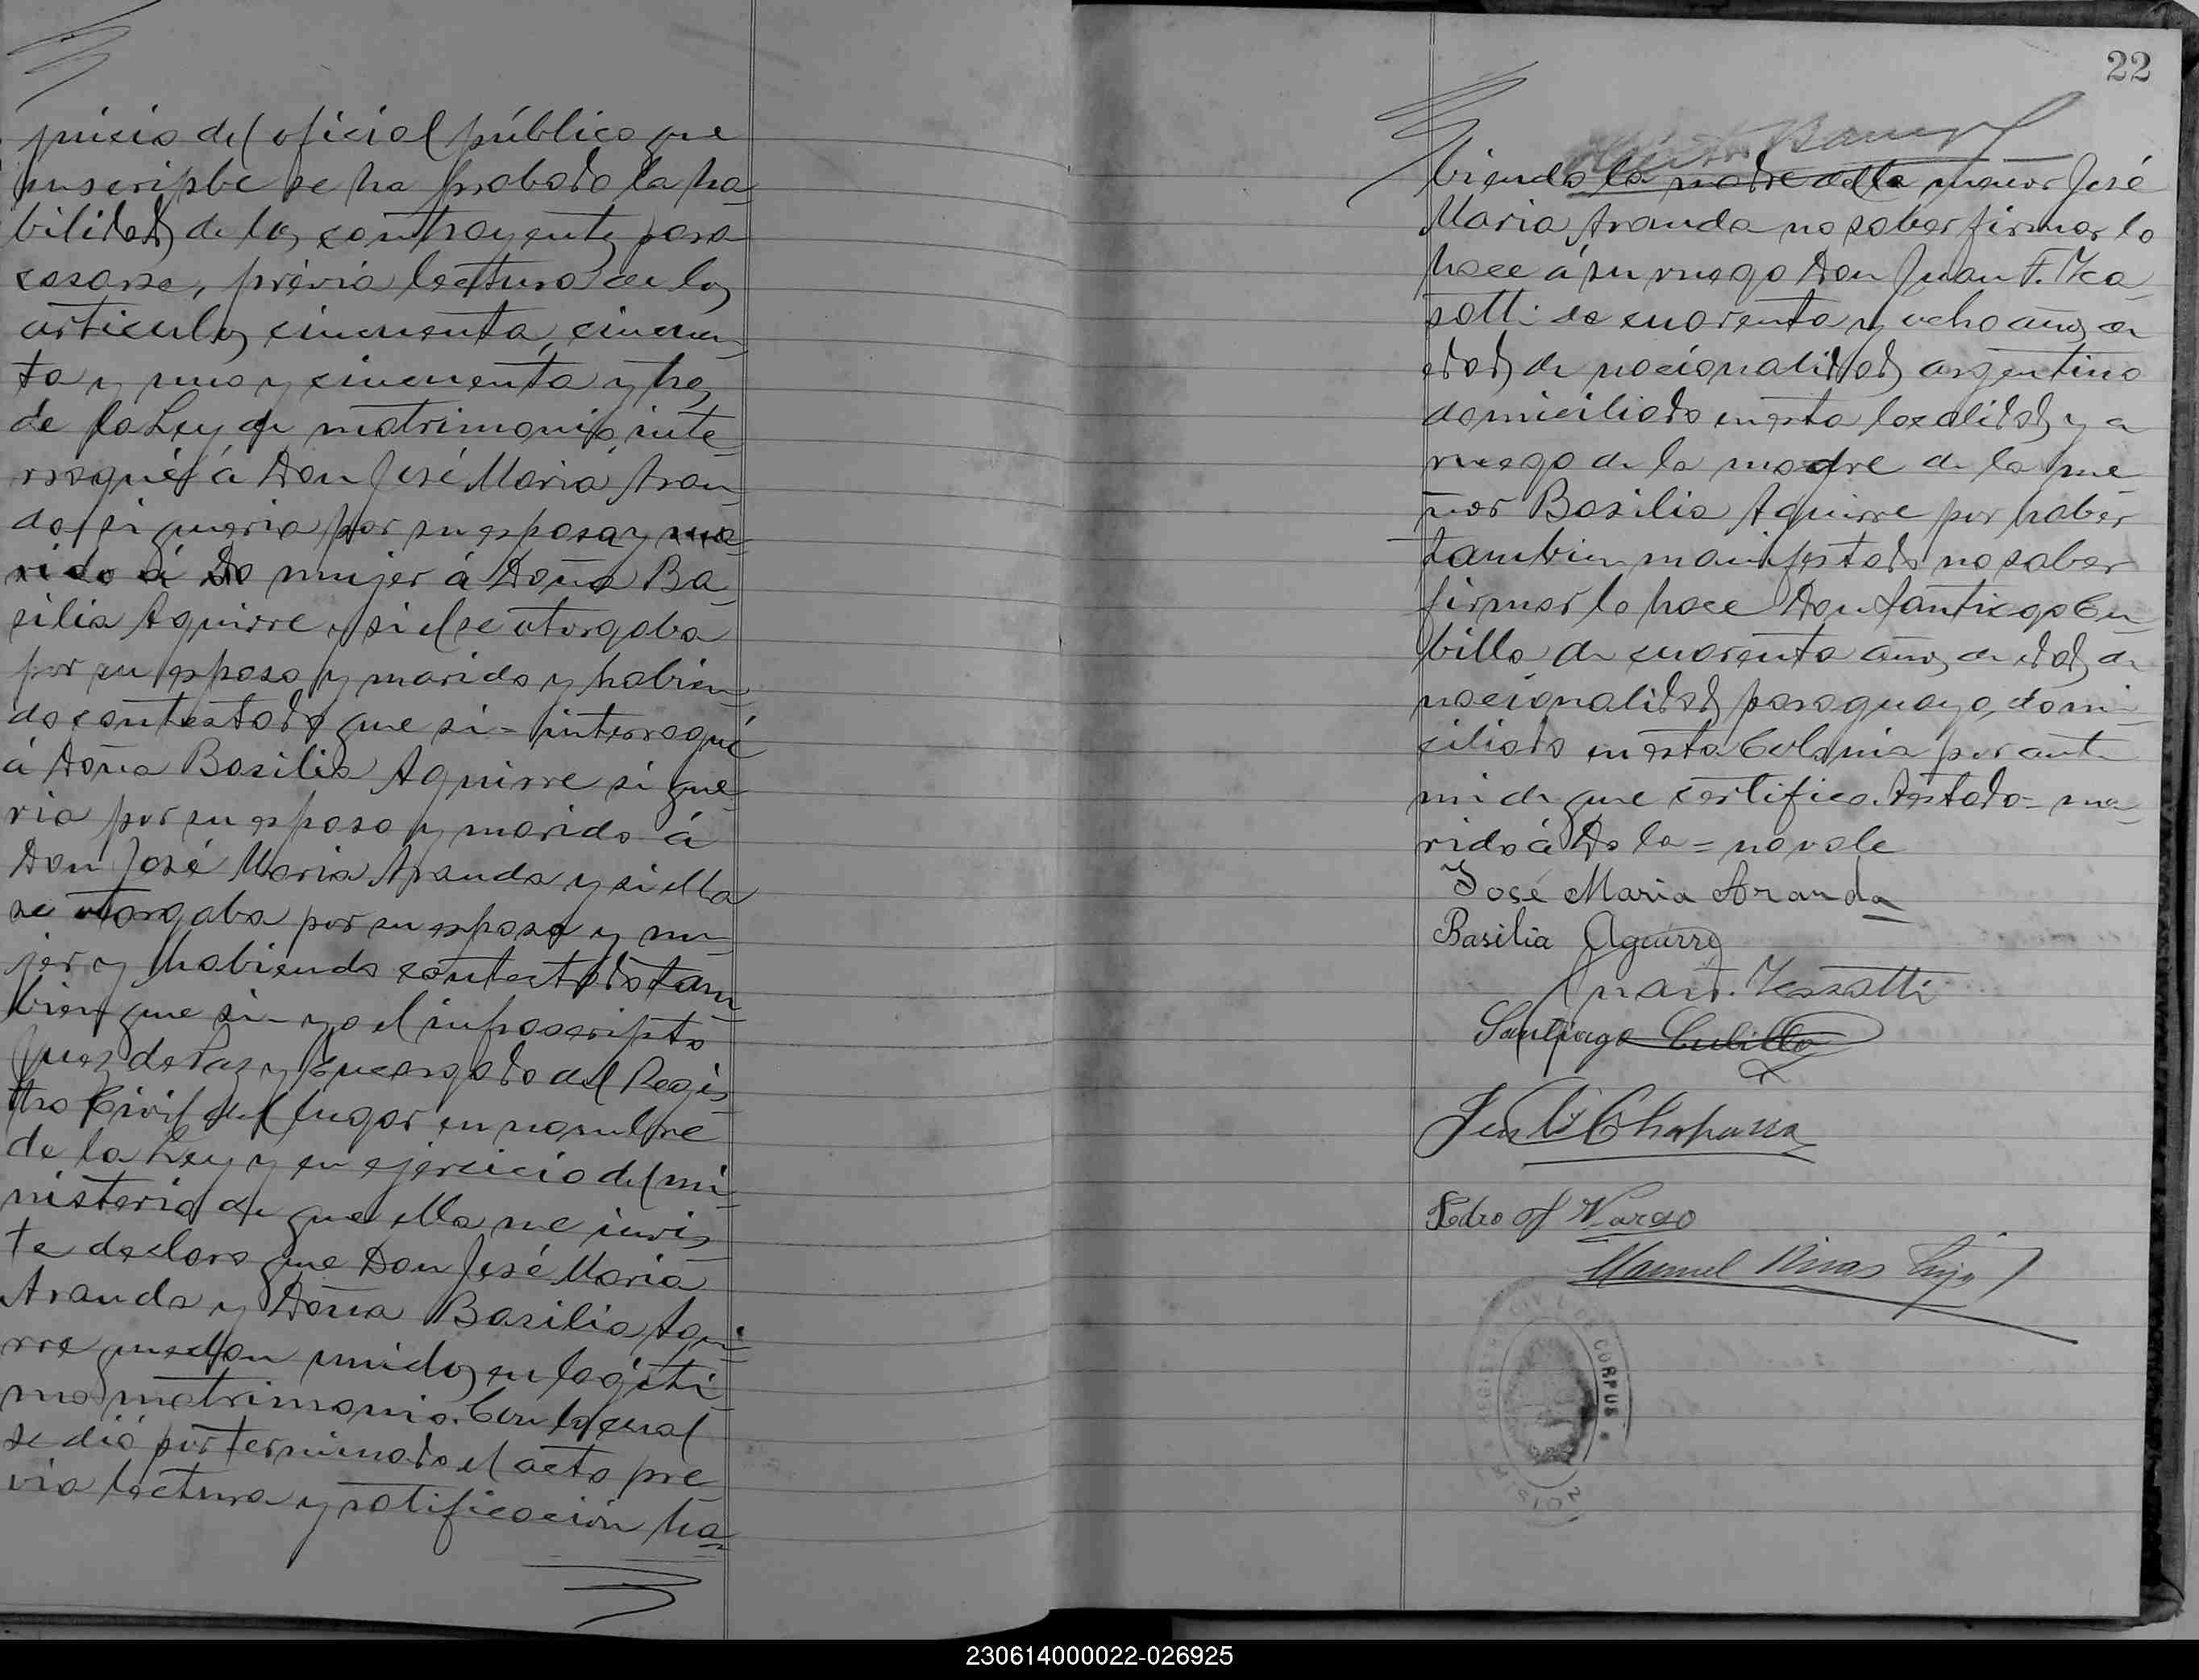 juicio del oficial público que
suscripbe se ha probado la ha-
bilidad de los contrayentes para
casarse, prévia lectura de los
articulos cincuenta, cincuen-
ta y uno y cincuenta y tres
de la Ley de matrimonio, inte-
rrogué á Don José Maria Aran-
da si queria por su esposa y ma-
rido á Do mujer á Doña Ba-
silia Aguirre y si el se otorgaba
por su esposo y marido y habien-
do contestado que si = interrogué
á Doña Basilia Aguirre si que-
ria por su esposo y marido á
Don José Maria Aranda y si ella
se otorgaba por su esposa y mu-
jer y habiendo contestado tam-
bien que si = yo el infrascripto
Juez de Paz y Encargado del Regis-
tro Civil del lugar en nombre
de la Ley y en ejercicio del mi-
nisterio de que ella me invis-
te declaro que Don José Maria
Aranda y Doña Basilia Agui-
rre quedan unidos en legiti-
mo matrimonio. Con lo cual
se dió por terminado el acto pre-
via lectura y ratificación ha-
22
biendo la madre del menor José
Maria Aranda no saber firmar lo
hace á su ruego Don Juan F.
de cuarenta y ocho años de
edad de nacionalidad argentino
domiciliado en esta localidad y a
ruego de la madre de la me-
nor Basilia Aguirre por haber
tambien manifestado no saber
firmar lo hace Don Santiago Cu-
billa de cuarenta años de edad de
nacionalidad paraguayo, domi-
ciliado en esta Colonia por ante
mi de que certifico. Testado = ma-
rido á Do la = no vale
José Maria Aranda
Basilia Aguirre
Juan F.
Santiago Cubilla
Chaparro
Pedro
Manuel Vivas hijo
REGISTRO CIVIL DE CORPUS
230614000022-026925